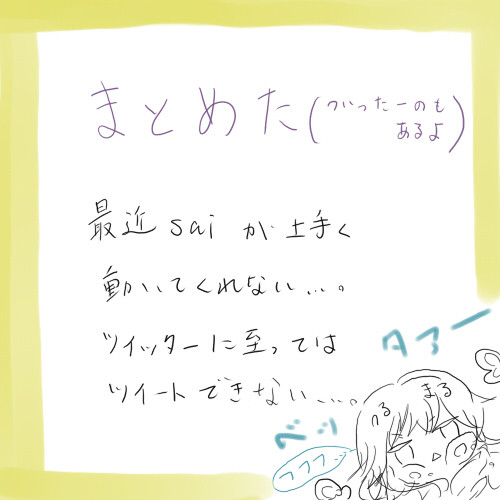 まとめた(ついったーのも
あるよ)
最近saiが上手く
動いてくれない…。
ツイッターに至っては
ツイートできない…。
タアー
まる
ベシ
フフフッ